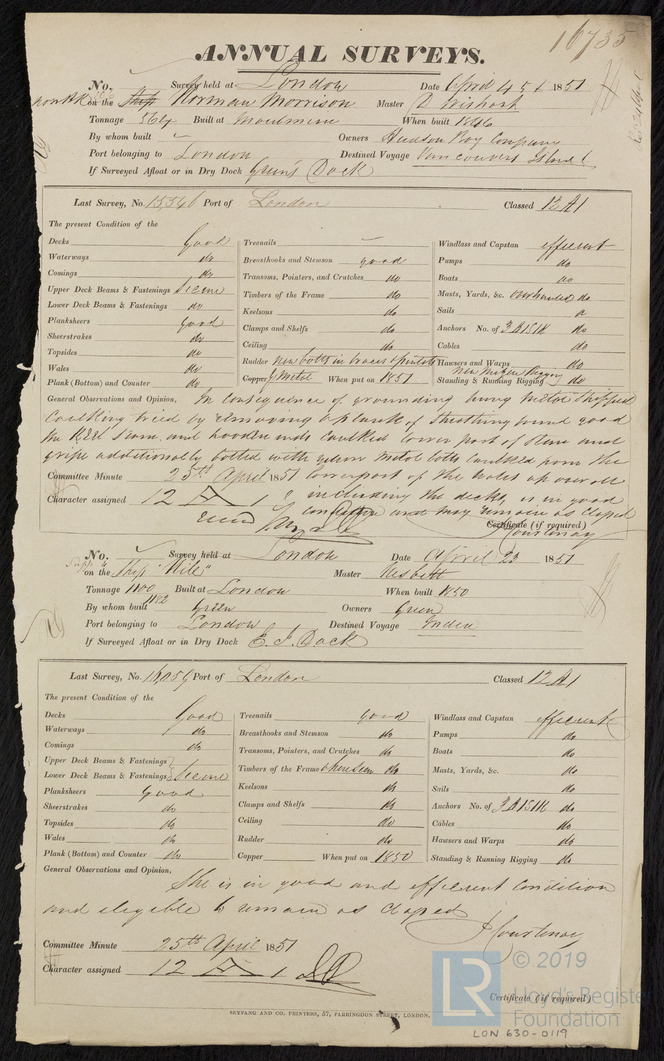 16735
ANNUAL SURVEYS.
No. Survey held at London Date April 1851
on the Ship Norman Morrison Master D Wishart
Tonnage 564 Built at Moulmein When built 1846
By whom built Owners Hudson Bay Company
Port belonging to London Destined Voyage Vancouvers Island
If Surveyed Afloat or in Dry Dock Green's Dock
Last Survey, No. 15,346 Port of London Classed 12 A1
The present Condition of the
Decks Good
Waterways do
Comings do
Upper Deck Beams & Fastenings Secure
Lower Deck Beams & Fastenings do
Planksheers good
Sheerstrakes do
Topsides do
Wales do
Plank (Bottom) and Counter do
Treenails
Breasthooks and Stemson good
Transoms, Pointers, and Crutches do
Timbers of the Frame do
Keelsons do
Clamps and Shelfs do
Ceiling do
Rudder New bolts in braces & pintles
Copper Y Metal When put on 1851
Windlass and Capstan efficient
Pumps do
Boats do
Masts, Yards, &c. Overhauled do
Sails
Anchors No. of 3 B 1 S 1 K do
Cables do
Hawsers and Warps do
Standing & Running Rigging do
General Observations and Opinion, In consequence of grounding having Metal Stripped
Caulking tried by removing a plank of Sheathing found good
the Keel seam and hooden ends Caulked lower part of Stem and
gripe additionally bolted with yellow Metal bolts Caulked from the
Committee Minute 25th April 1851 lower part of the Wales up over all
Character assigned 12 A 1 including the decks, is in good
condition and may remain as Classed
Certificate (if required)
J Courtenay
No. Survey held at London Date April 23 1851
on the Ship "Nile" Master Nesbitt
Tonnage 1100 Built at London When built 1850
1182
By whom built Green Owners Green
Port belonging to London Destined Voyage India
If Surveyed Afloat or in Dry Dock E. I. Dock
Last Survey, No. 16,059 Port of London Classed 12 A1
The present Condition of the
Decks Good
Waterways do
Comings do
Upper Deck Beams & Fastenings
Lower Deck Beams & Fastenings Secure
Planksheers Good
Sheerstrakes do
Topsides do
Wales do
Plank (Bottom) and Counter do
Treenails good
Breasthooks and Stemson do
Transoms, Pointers, and Crutches do
Timbers of the Frame do
Keelsons do
Clamps and Shelfs do
Ceiling do
Rudder do
Copper When put on 1850
Windlass and Capstan efficient
Pumps do
Boats do
Masts, Yards, &c. do
Sails do
Anchors No. of 3 B 1 S 1 K do
Cables do
Hawsers and Warps do
Standing & Running Rigging do
General Observations and Opinion,
She is in good and efficient condition
and eligible to remain as Classed
J Courtenay
Committee Minute 25th April 1851
Character assigned 12 A 1
Certificate (if required)
SEYFANG AND CO. PRINTERS, 57, FARRINGDON STREET, LONDON.
LR © 2019
Lloyd's Register
Foundation
LON 630-0119